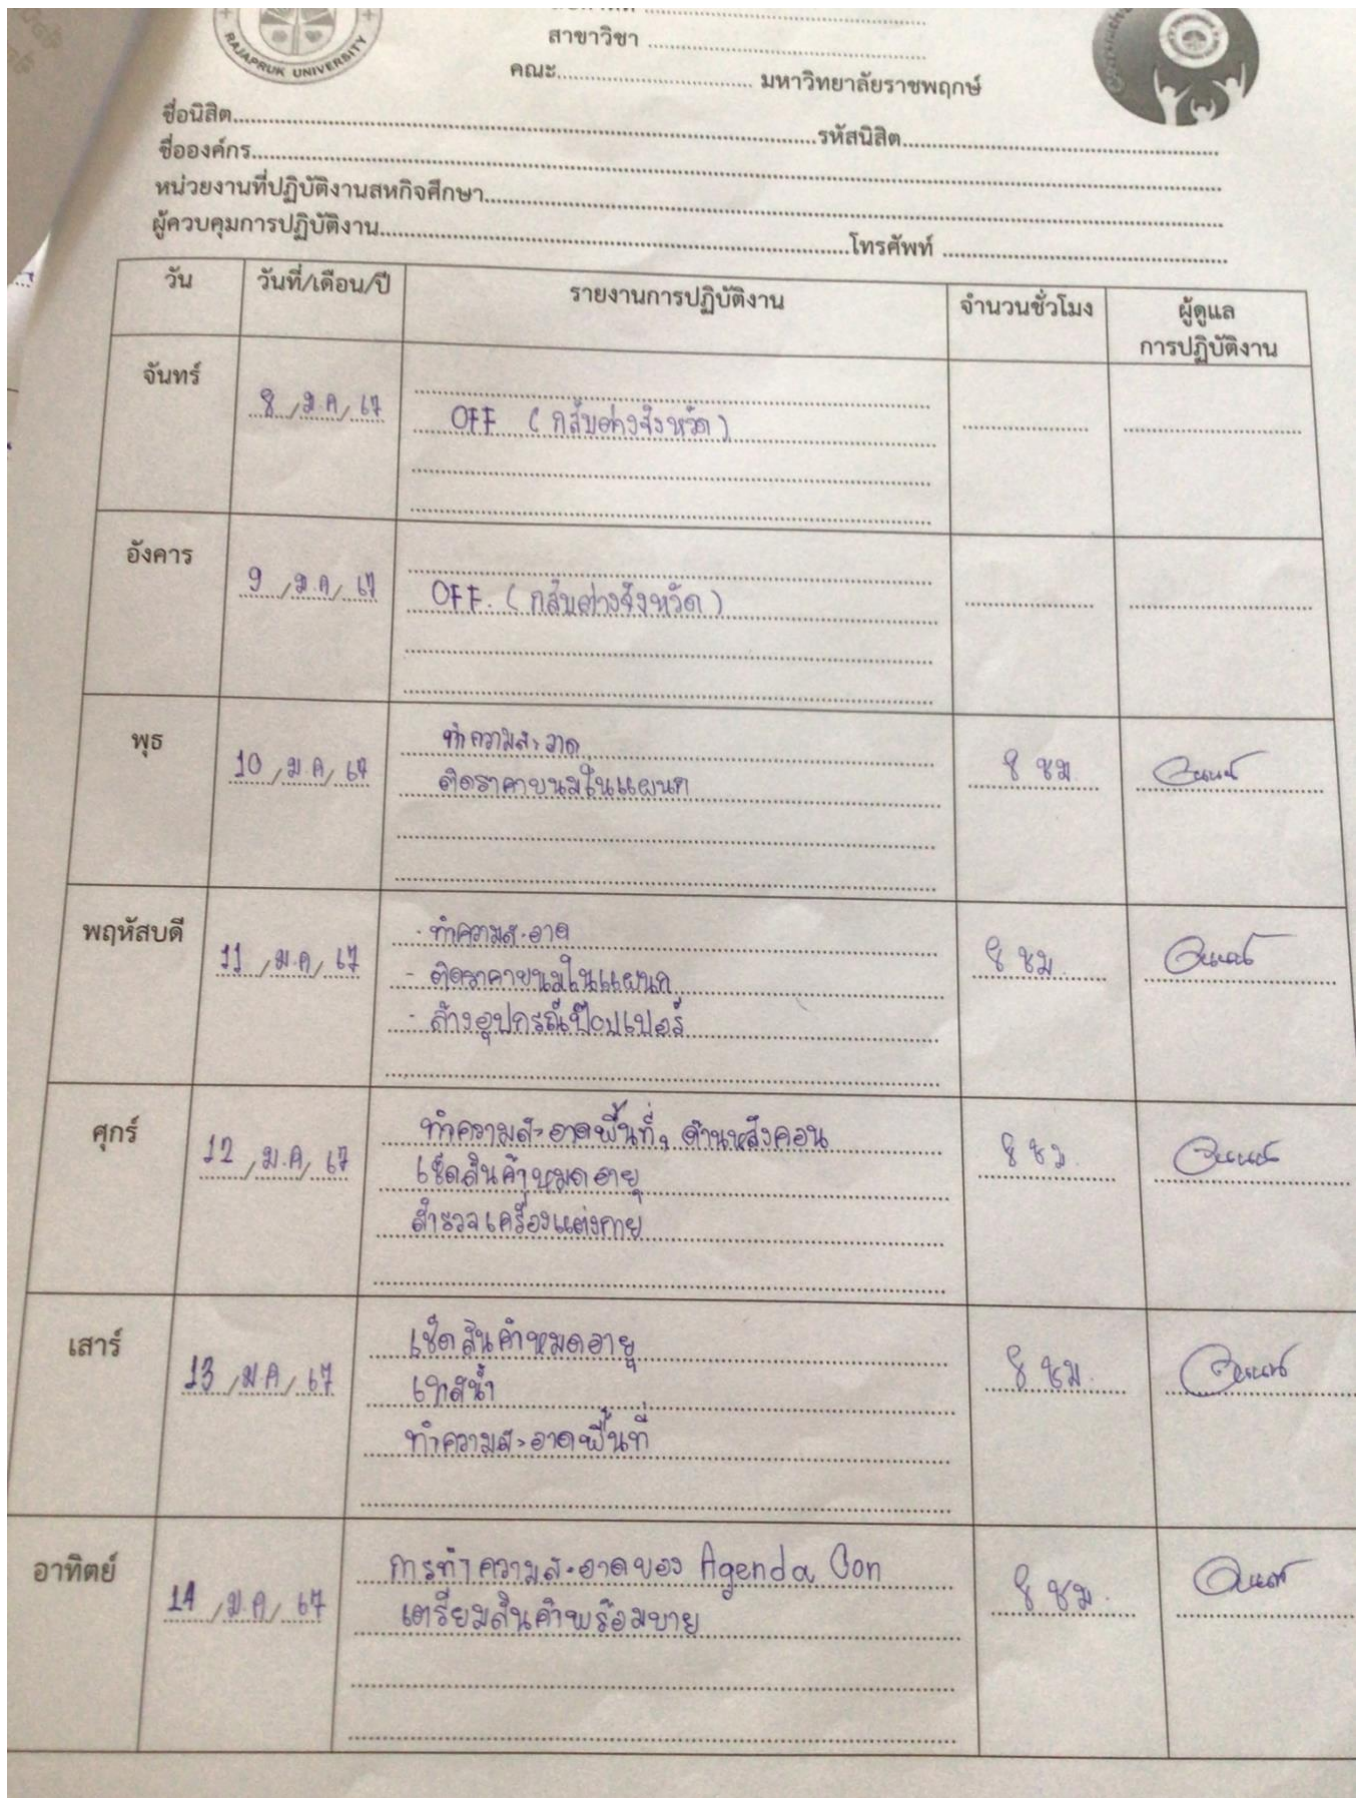 RAJAPRUK UNIVERSITY
สาขาวิชา
คณะ มหาวิทยาลัยราชพฤกษ์
ชื่อนิสิต รหัสนิสิต
ชื่อองค์กร
หน่วยงานที่ปฏิบัติงานสหกิจศึกษา
ผู้ควบคุมการปฏิบัติงาน โทรศัพท์
วัน วันที่/เดือน/ปี รายงานการปฏิบัติงาน จำนวนชั่วโมง ผู้ดูแล
การปฏิบัติงาน
จันทร์
8 / ม.ค / 67
OFF (กลับต่างจังหวัด)
อังคาร
9 / ม.ค / 67
OFF. (กลับต่างจังหวัด)
พุธ
10 / ม.ค / 67
ทำความสะอาด
ติดราคาขนมในแผนก
8 ชม
พฤหัสบดี
11 / ม.ค / 67
- ทำความสะอาด
- ติดราคาขนมในแผนก
- ล้างอุปกรณ์ป๊อปเปอร์
8 ชม.
ศุกร์
12 / ม.ค / 67
ทำความสะอาดพื้นที่, ด้านหลังคอน
เช็ดสินค้าหมดอายุ
สำรวจเครื่องแต่งกาย
8 ชม.
เสาร์
13 / ม.ค / 67
เช็ดสินค้าหมดอายุ
เทสน้ำ
ทำความสะอาดพื้นที่
8 ชม.
อาทิตย์
14 / ม.ค / 67
การทำความสะอาดของ Agenda Con
เตรียมสินค้าพร้อมขาย
8 ชม.